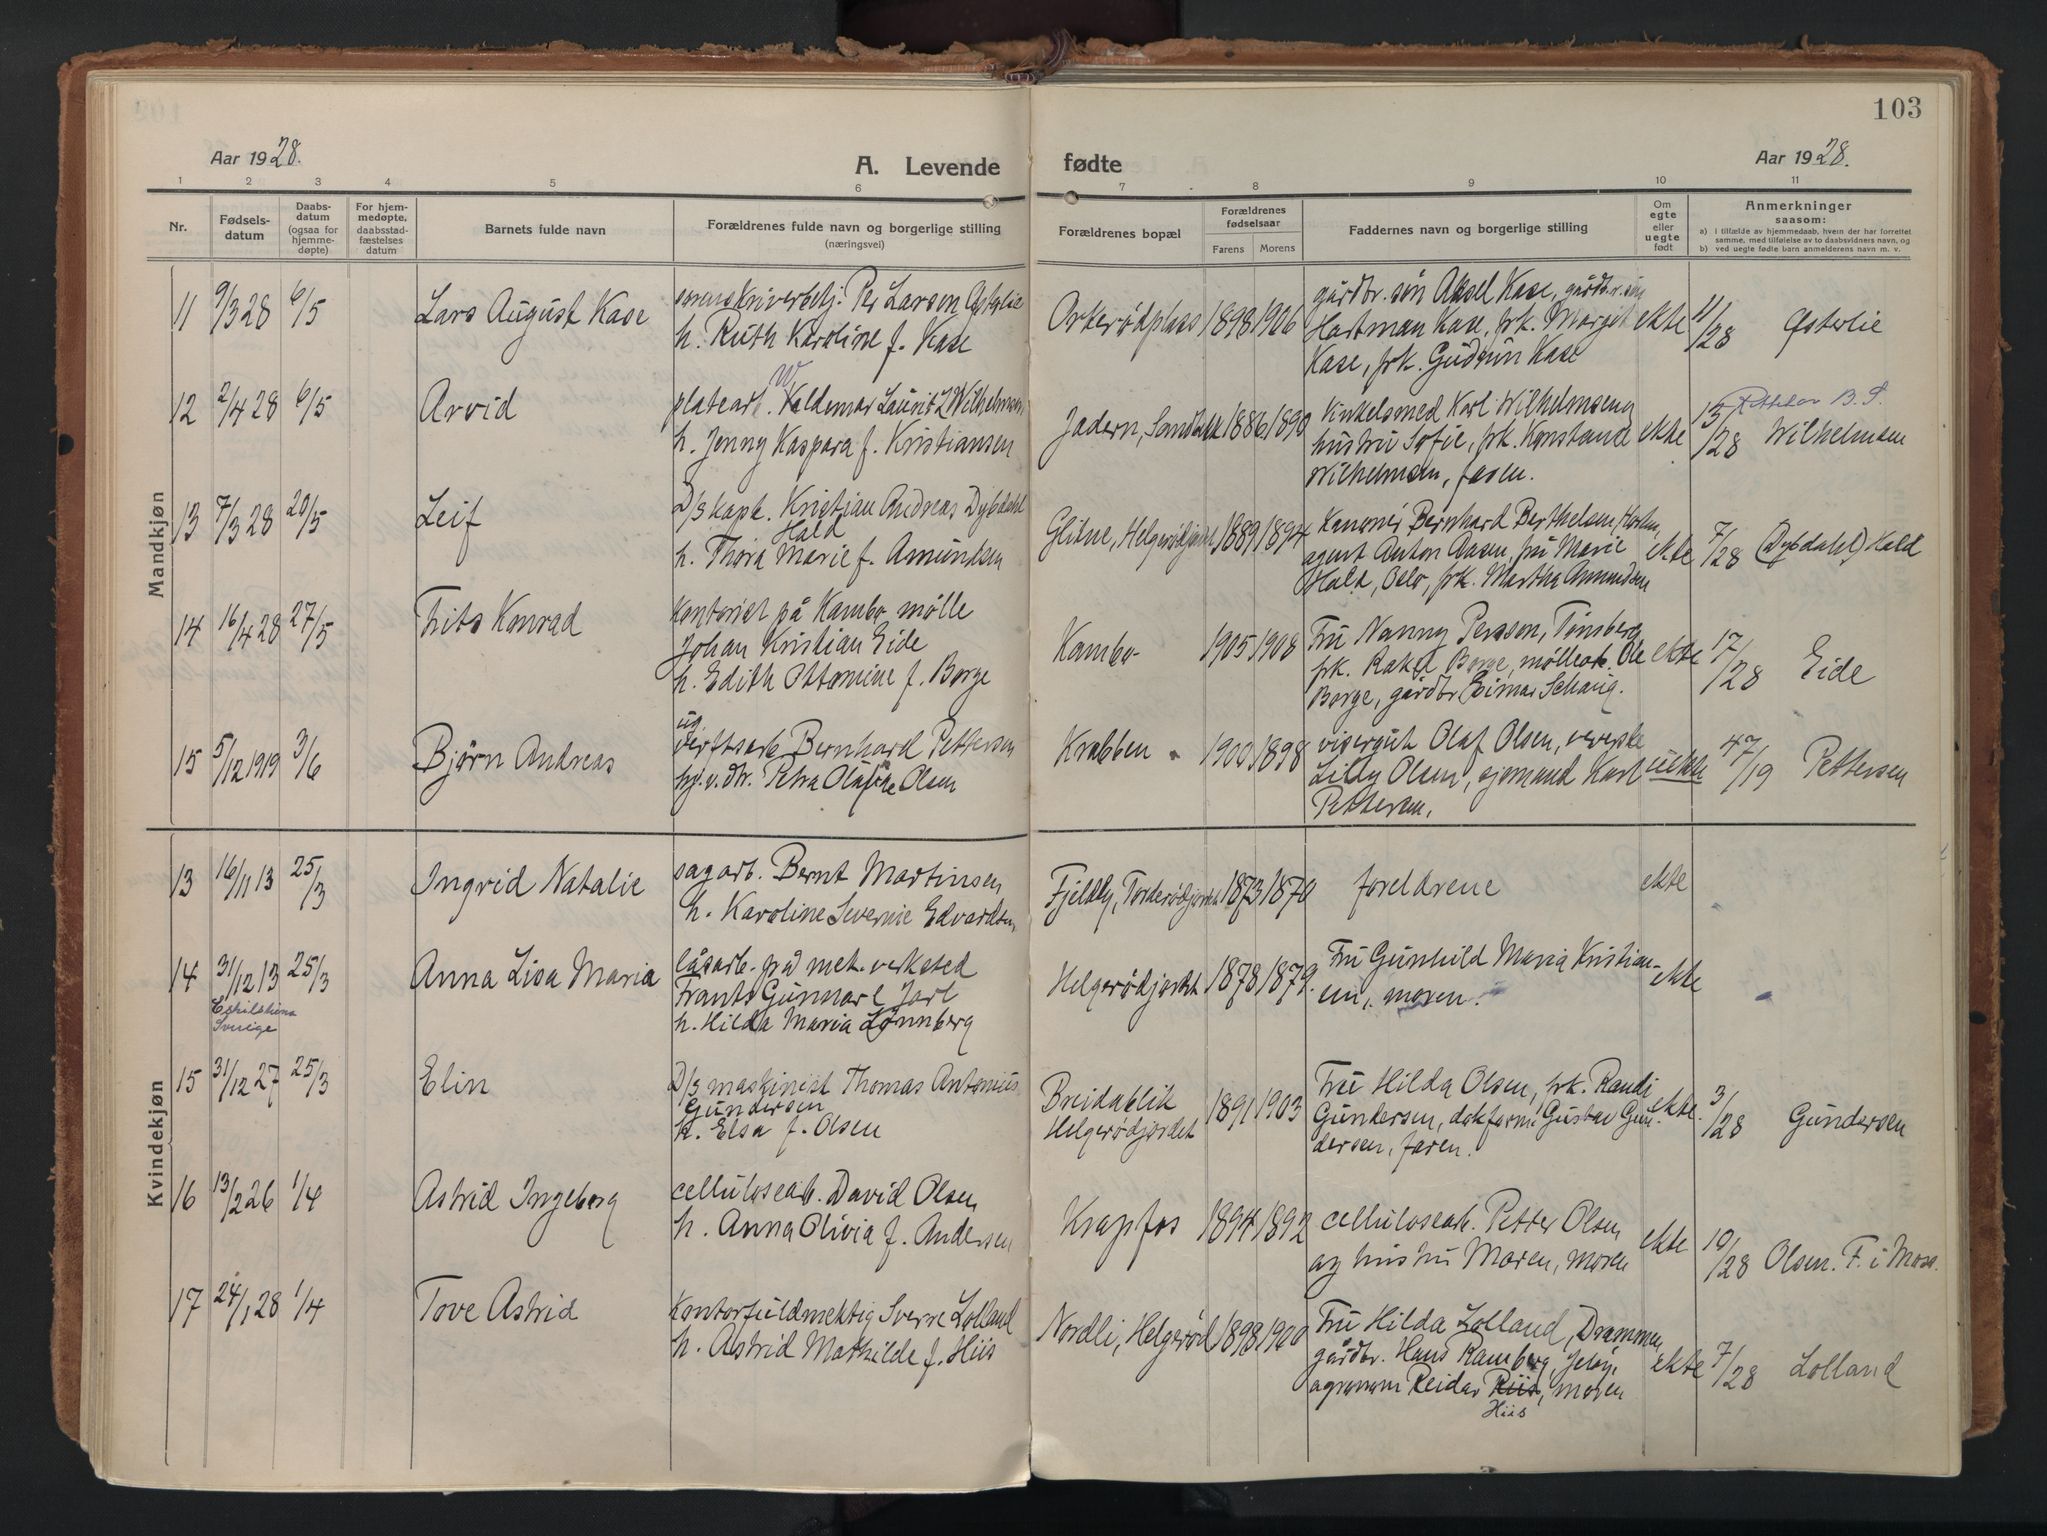 103
Aar 1928.
A. Levende
fødte
Aar 1928.
1 2 3 4 5 6 7 8 9 10 11
Nr.
Fødsels-
datum
Daabs-
datum
(ogsaa for
hjemme-
døpte)
For hjem-
medøpte,
daabsstad-
fæstelses
datum
Barnets fulde navn
Forældrenes fulde navn og borgerlige stilling
(næringsvei)
Forældrenes bopæl
Forældrenes
fødselsaar
Farens Morens
Faddernes navn og borgerlige stilling
Om
egte
eller
uegte
født
Anmerkninger
saasom:
a) i tilfælde av hjemmedaab, hvem der har forrettet
samme, med tilføielse av to daabsvidners navn, og
b) ved uegte fødte barn anmelderens navn m. v.
Mandkjøn
11 9/3 28 6/5 Lars August Kase
sorenskriverbetj. Per Larsen Østerlie
h. Ruth Karoline f. Kase
Orkerødplass 1898 1906
gårdbr. søn Aksel Kase, gårdbr. søn
Hartman Kase, frk. Margit
Kase, frk. Gudrun Kase
ekte 11/28 Østerlie
12 2/4 28 6/5 Arvid
W
platearb. Valdemar Lauritz Wilhelmsen
h. Jenny Kaspara f. Kristiansen
Jadern, Sandbakk 1886 1890
Vinkelsmed Karl Wilhelmsen og
hustru Sofie, frk. Konstance
Wilhelmsen, faren.
ekte 15/28 B. S.
Wilhelmsen
13 7/3 28 20/5 Leif
D/s kapt. Kristian Andreas Dybdahl
Hald
h. Thora Marie f. Amundsen
Glitne, Helgerødjordet 1889 1894
Kanonér Bernhard Berthelsen, Horten,
agent Anton Aasen, fru Marie
Hald, Oslo, frk. Martha Amundsen
ekte 7/28 (Dybdahl) Hald
14 16/4 28 27/5 Frits Konrad
Kontorist på Kambo mølle
Johan Kristian Eide
h. Edith Ottomine f. Borge
Kambo 1905 1908
Fru Nanny Persson, Tønsberg
frk. Rakel Borge, møllearb. Ole
Borge, gårdbr Einar Schaug.
ekte 17/28 Eide
15 5/12 1919 3/6 Bjørn Andreas
ug.
verftsarb Bernhard Pettersen
og. v. dtr. Petra Olafine Olsen
Krabben 1900 1898
visergut Olaf Olsen, veverske
Lilly Olsen, sjømand Karl
Pettersen.
uekte 47/19 Pettersen
Kvindekjøn
13 16/11 13 25/3 Ingrid Natalie
sagarb. Bernt Martinsen
h. Karoline Severine Edvardsen
Fjeldly, Torderødjordet 1873 1870
foreldrene
ekte
14 31/12 13 25/3 Anna Lisa Maria
Eskilstuna
Sverige
låsarb. på mek. verksted
Frants Gunnar E Jarl
h. Hilda Maria Lønnberg
Helgerødjordet 1878 1879.
Fru Gunhild Maria Kristian-
sen, moren.
ekte
15 31/12 27 25/3 Elin
D/s maskinist Thomas Antonius
Gundersen
h. Elsa f. Olsen
Breidablik
Helgerødjordet
1891 1903
Fru Hilda Olsen, frk. Randi
Gundersen, dekforma Gustav Gun-
dersen, faren.
ekte. 3/28 Gundersen
16 13/2 26 1/4 Astrid Ingeborg
cellulosearb. David Olsen
h. Anna Olivia f. Andersen
Krapfos 1894 1892
cellulosearb. Petter Olsen
og hustru Maren, moren
ekte 10/28 Olsen. F. i Moss.
17 24/1 28 1/4 Tove Astrid
Kontorfuldmektig Sverre Lolland
h. Astrid Mathilde f. Hiis
Nordli, Helgerød 1898 1900
Fru Hilda Lolland, Drammen,
gårdbr. Hans Ramberg, Jeløy,
agronom Reidar Riis, moren
Hiis
ekte 7/28 Lolland